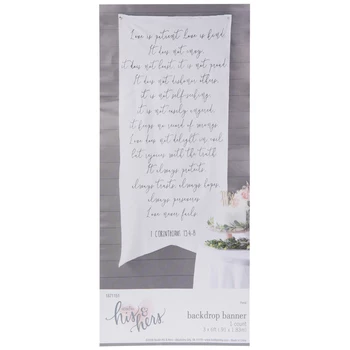 Love is patient, love is kind.
It does not envy,
it does not boast, it is not proud.
It does not dishonor others,
it is not self-seeking,
it is not easily angered,
it keeps no record of wrongs.
Love does not delight in evil
but rejoices with the truth.
It always protects,
always trusts, always hopes,
always perseveres.
Love never fails.
1 CORINTHIANS 13:4-8
his & hers
backdrop banner
1 count